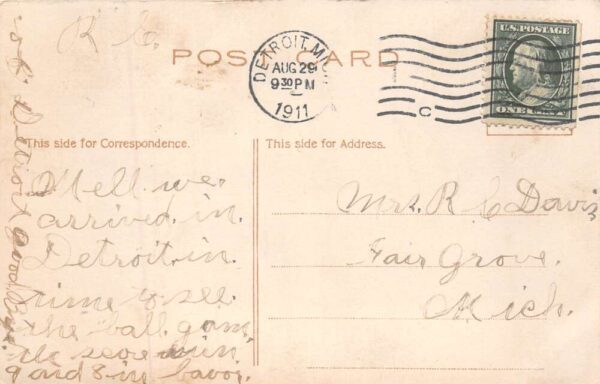 R. C.
POST CARD
DETROIT, MICH.
AUG 29
9 30 PM
1911
C
U.S. POSTAGE
ONE CENT
This side for Correspondence.
This side for Address.
Well we
arrived in
Detroit in
time to see
the ball gam
the score
9 and 8 in favor
of Detroit
Mrs. R C Davis
Fair Grove.
Mich.